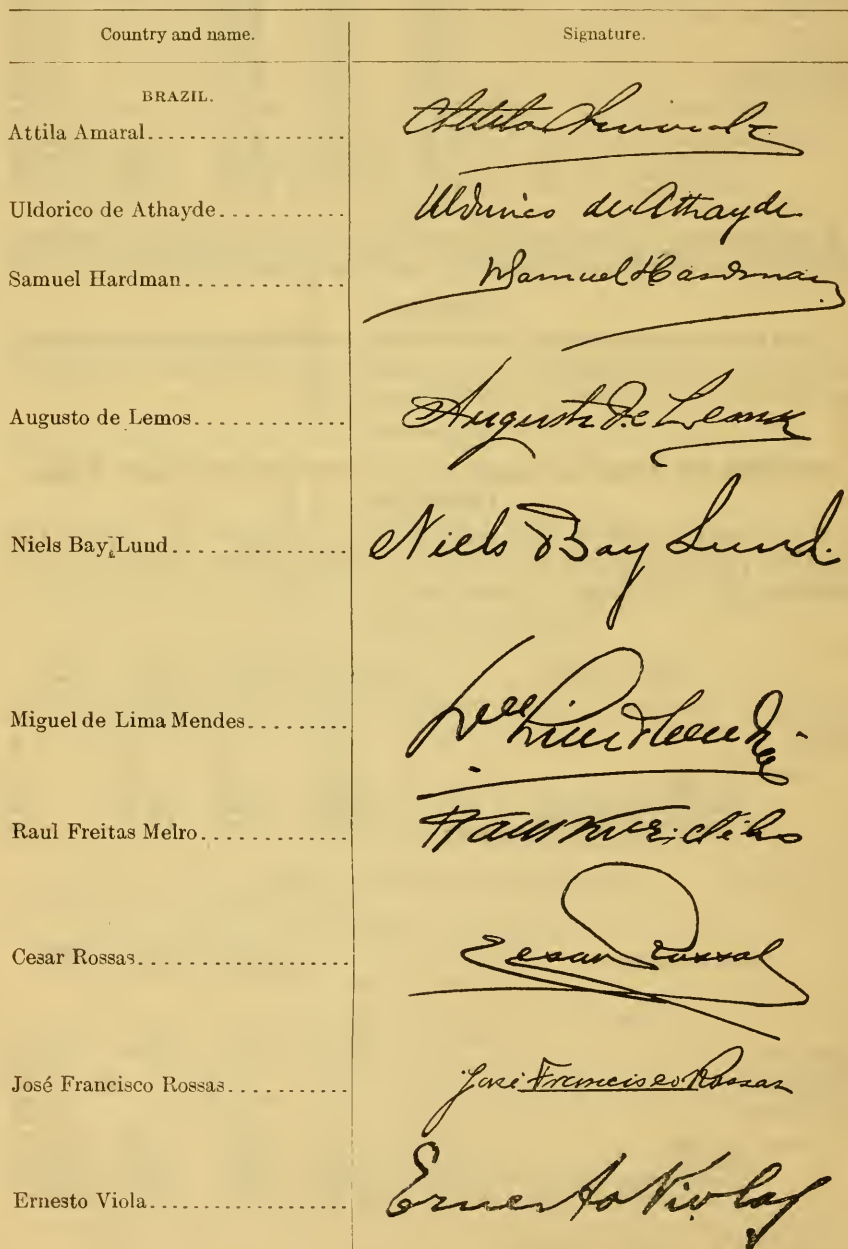 Country and name. Signature.
BRAZIL.
Attila Amaral.................. Attila
Uldorico de Athayde........... Uldorico de Athayde
Samuel Hardman.............. Samuel Hardman
Augusto de Lemos............. Augusto de Lemos
Niels Bay Lund............... Niels Bay Lund.
Miguel de Lima Mendes.........
Raul Freitas Melro.............
Cesar Rossas.................. Cesar Rossas
José Francisco Rossas........... José Francisco Rossas
Ernesto Viola.................. Ernesto Viola